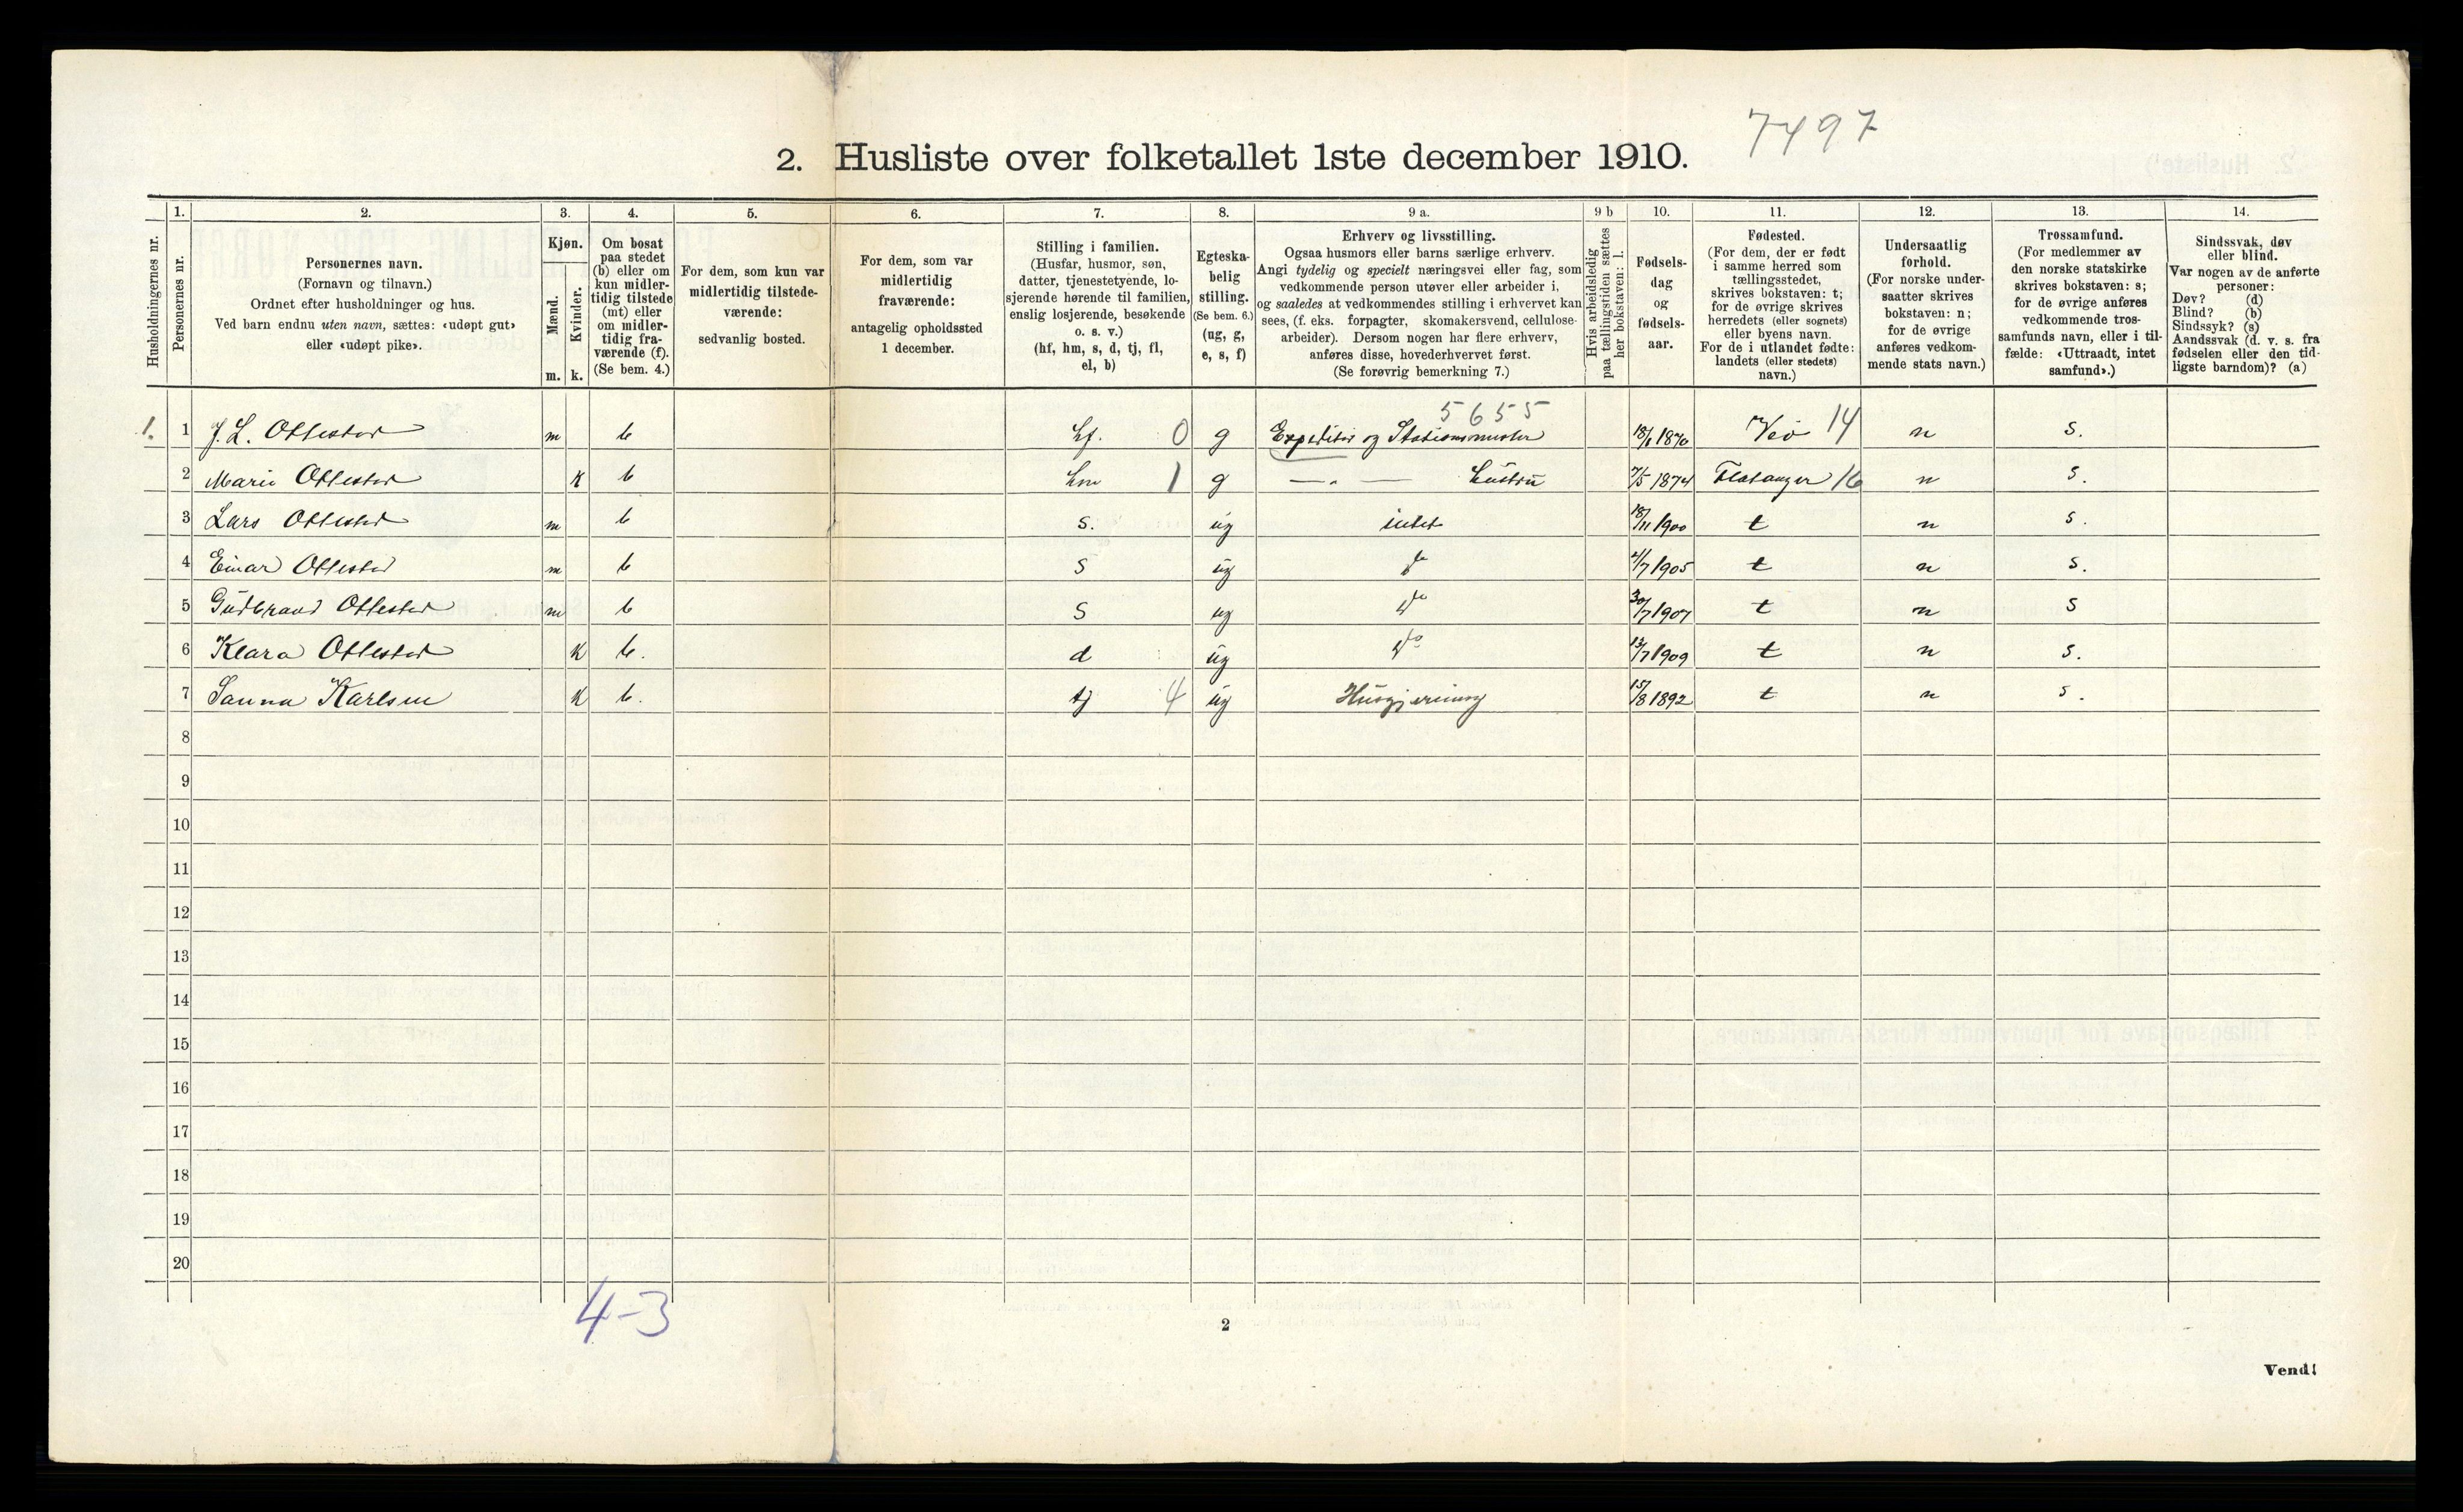 7497
2. Husliste over folketallet 1ste december 1910.
Husholdningernes nr.
1.
Personernes nr.
2.
Personernes navn.
(Fornavn og tilnavn.)
Ordnet efter husholdninger og hus.
Ved barn endnu uten navn, sættes: «udøpt gut»
eller «udøpt pike».
3.
Kjøn.
Mænd.
Kvinder.
m. k.
4.
Om bosat
paa stedet
(b) eller om
kun midler-
tidig tilstede
(mt) eller
om midler-
tidig fra-
værende (f).
(Se bem. 4.)
5.
For dem, som kun var
midlertidig tilstede-
værende:
sedvanlig bosted.
6.
For dem, som var
midlertidig
fraværende:
antagelig opholdssted
1 december.
7.
Stilling i familien.
(Husfar, husmor, søn,
datter, tjenestetyende, lo-
sjerende hørende til familien,
enslig losjerende, besøkende
o. s. v.)
(hf, hm, s, d, tj, fl,
el, b)
8.
Egteska-
belig
stilling.
(Se bem. 6.)
(ug, g,
e, s, f)
9 a.
Erhverv og livsstilling.
Ogsaa husmors eller barns særlige erhverv.
Angi tydelig og specielt næringsvei eller fag, som
vedkommende person utøver eller arbeider i,
og saaledes at vedkommendes stilling i erhvervet kan
sees, (f. eks. forpagter, skomakersvend, cellulose-
arbeider). Dersom nogen har flere erhverv,
anføres disse, hovederhvervet først.
(Se forøvrig bemerkning 7.)
9 b
Hvis arbeidsledig
paa tællingstiden sættes
her bokstaven: l.
10.
Fødsels-
dag
og
fødsels-
aar.
11.
Fødested.
(For dem, der er født
i samme herred som
tællingsstedet,
skrives bokstaven: t;
for de øvrige skrives
herredets (eller sognets)
eller byens navn.
For de i utlandet fødte:
landets (eller stedets)
navn.)
12.
Undersaatlig
forhold.
(For norske under-
saatter skrives
bokstaven: n;
for de øvrige
anføres vedkom-
mende stats navn.)
13.
Trossamfund.
(For medlemmer av
den norske statskirke
skrives bokstaven: s;
for de øvrige anføres
vedkommende tros-
samfunds navn, eller i til-
fælde: «Uttraadt, intet
samfund».)
14.
Sindssvak, døv
eller blind.
Var nogen av de anførte
personer:
Døv? (d)
Blind? (b)
Sindssyk? (s)
Aandssvak (d. v. s. fra
fødselen eller den tid-
ligste barndom)? (a)
5655
1. 1 J. L. Ottestad m b hf. 0 g Expeditør og Stationsmester 18/1 1870 Veö 14 n s.
2 Marie Ottestad K b hm 1 g —„— hustru 7/5 1874 Flatanger 16 n s.
3 Lars Ottestad m b s. ug intet 18/11 1900 t n s.
4 Einar Ottestad m b s ug do 4/7 1905 t n s.
5 Gudbrand Ottestad m b s ug do 30/7 1907 t n s
6 Klara Ottestad K b. d ug do 13/7 1909 t n s.
7 Sanna Karlsen K b. tj 4 ug Husgjerning 15/8 1892 t n s.
8
9
10
11
12
13
14
15
16
17
18
19
20
4-3
2
Vend!